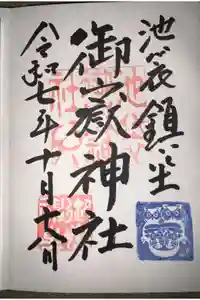 池袋鎮に坐
御嶽神社
令和七年十月